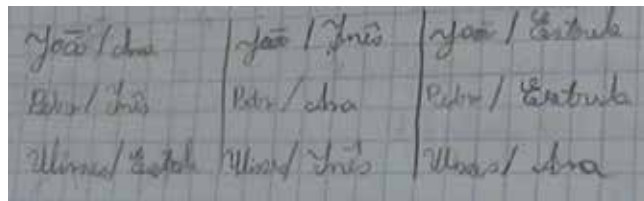 João / Ana João / Inês João / Estrela
Pedro / Inês Pedro / Ana Pedro / Estrela
Ulisses / Estrela Ulisses / Inês Ulisses / Ana